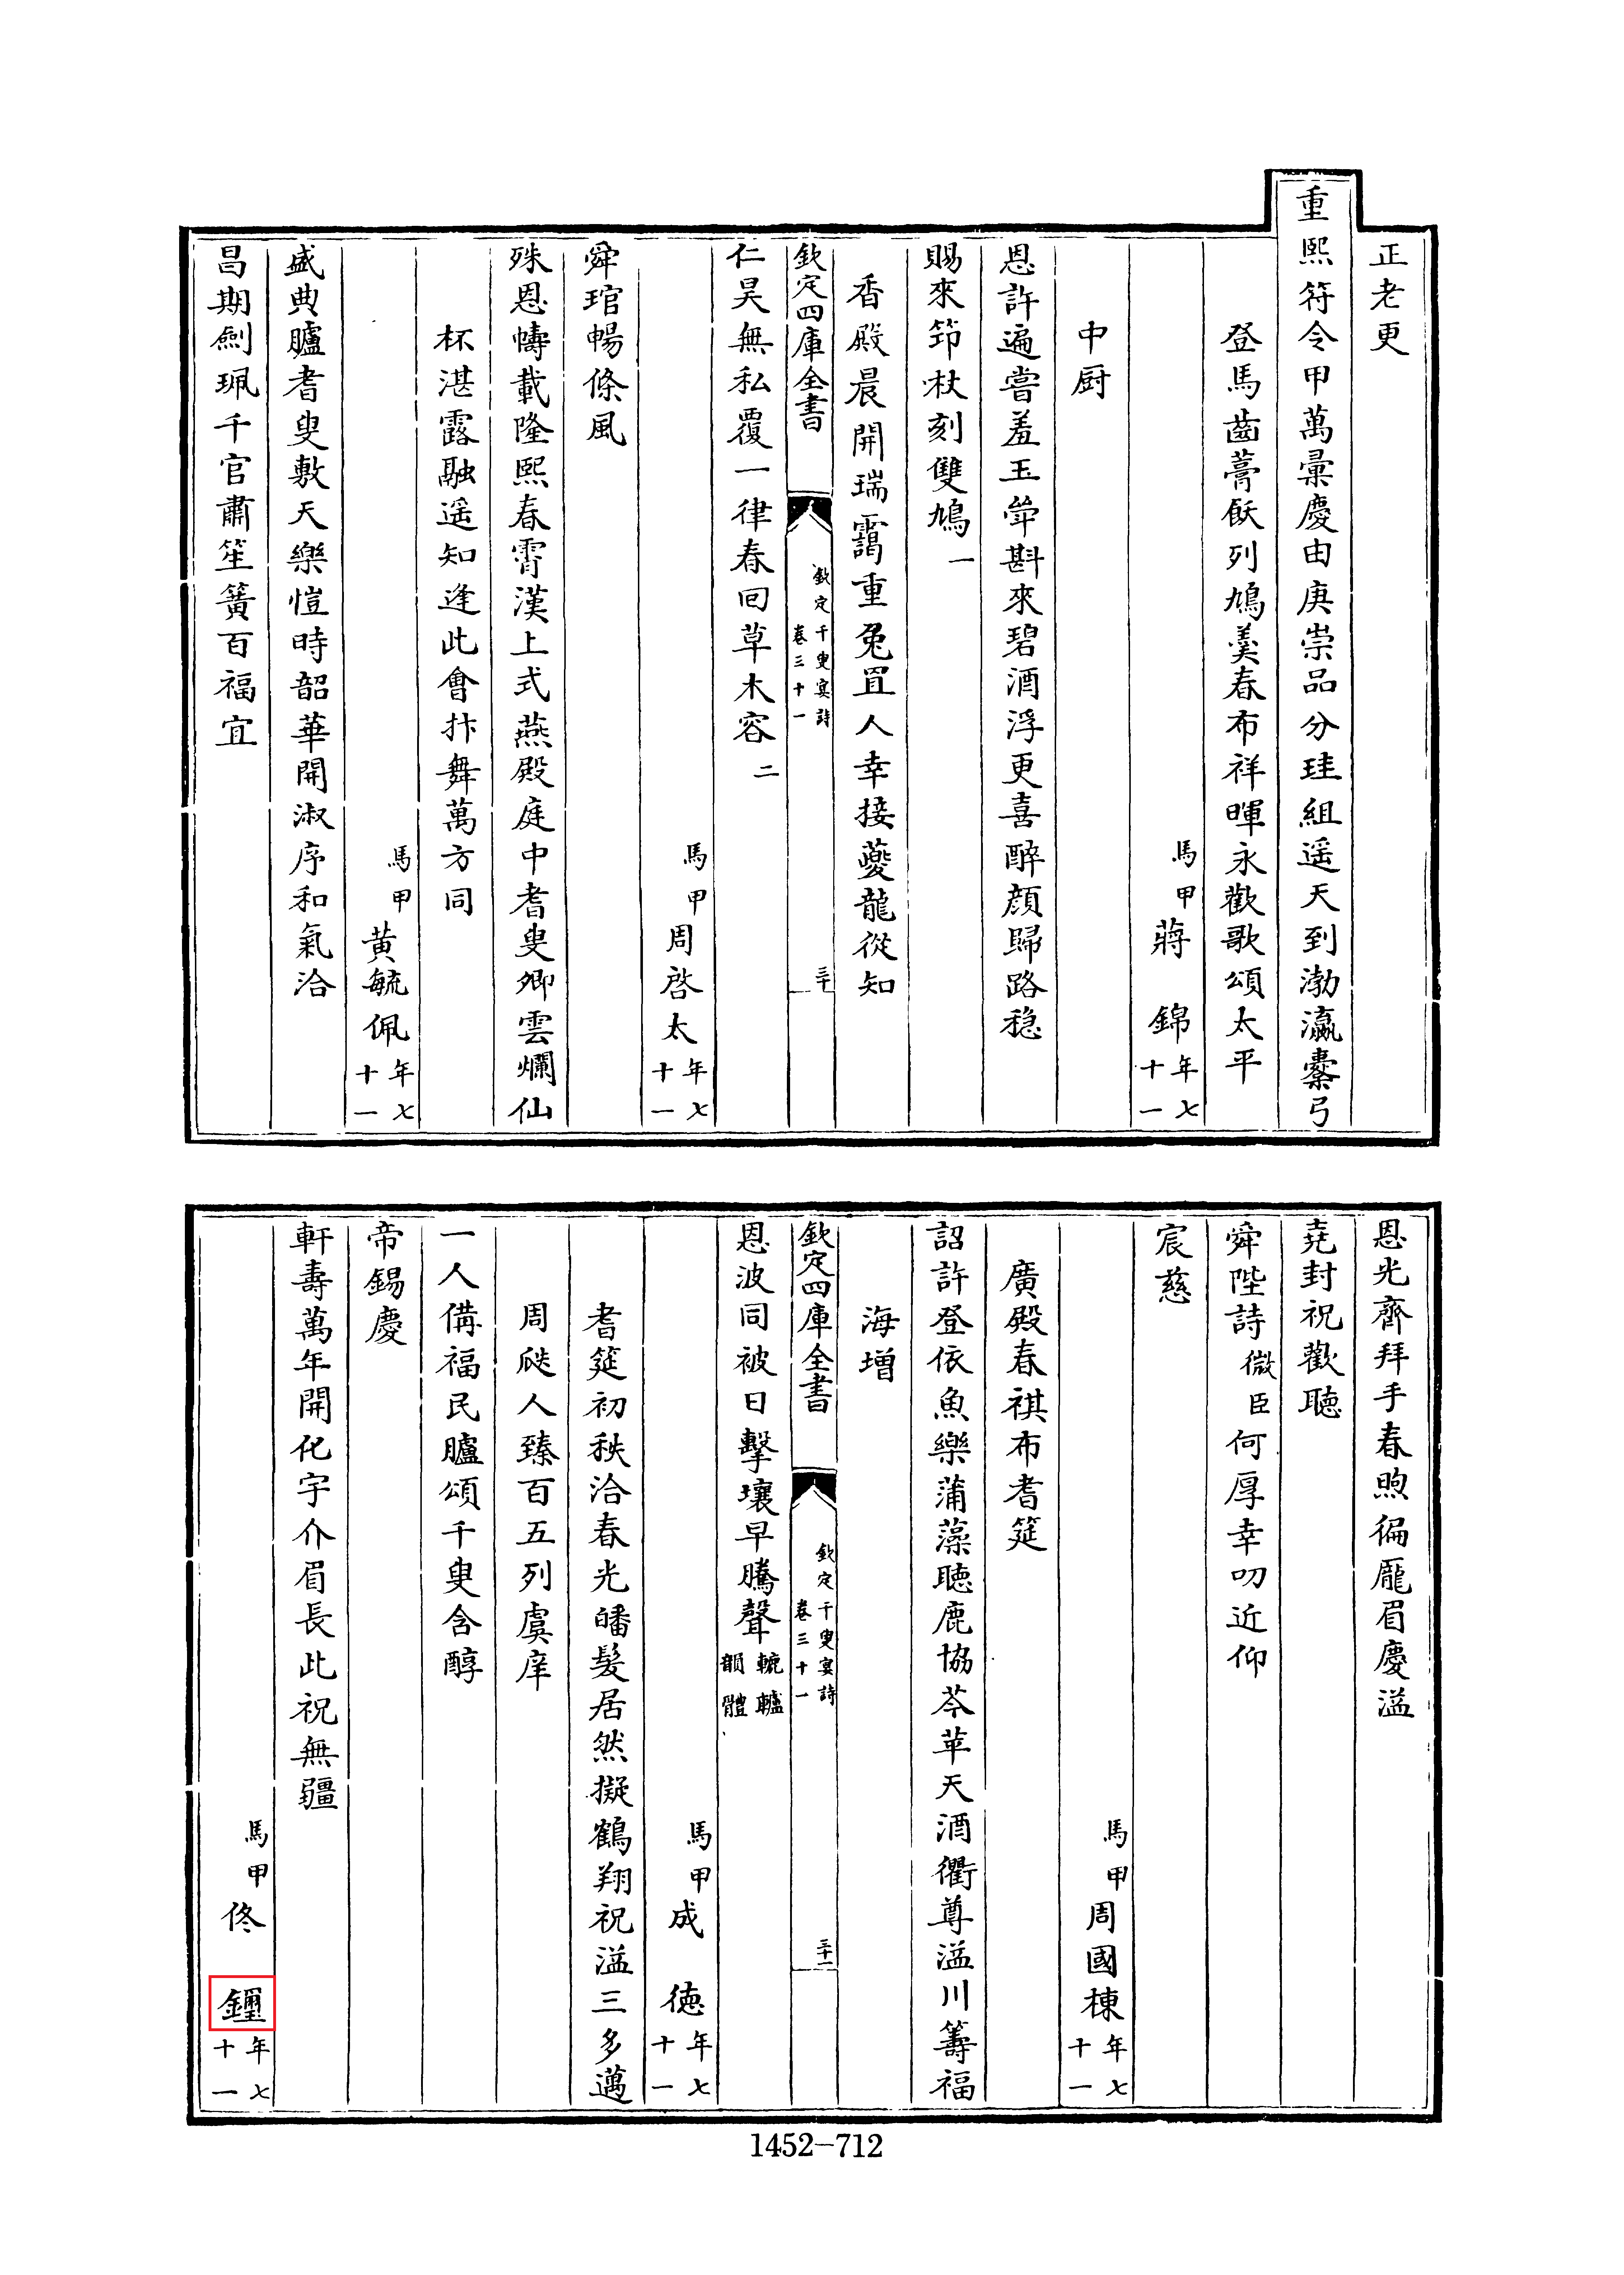 正老更
重熙符令甲萬彚慶由庚崇品分珪組遥天到渤瀛櫜弓
登馬齒薵飫列鳩羹春布祥暉永歡歌頌太平
馬甲蔣 錦年七十一
中厨
恩許遍嘗羞玉斝斟來碧酒浮更喜醉顔歸路穏
賜來筇杖刻雙鳩一
香殿晨開瑞靄重兔罝人幸接夔龍從知
欽定四庫全書 欽定千叟宴詩卷三十一 三十
仁昊無私覆一律春回草木容二
馬甲周啓太年七十一
舜琯暢條風
殊恩幬載隆熙春霄漢上式燕殿庭中耆叟卿雲爛仙
杯湛露融遥知逢此會抃舞萬方同
馬甲黄毓佩年七十一
盛典臚耆叟敷天樂愷時韶華開淑序和氣洽
昌期劍珮千官肅笙簧百福宜
恩光齊拜手春煦徧厖眉慶溢
堯封祝歡聴
舜陛詩微臣何厚幸叨近仰
宸慈
馬甲周國棟年七十一
廣殿春祺布耆筵
詔許登依魚樂蒲藻聴鹿協芩苹天酒衢尊溢川籌福
海增
欽定四庫全書 欽定千叟宴詩卷三十一 三十一
恩波同被日擊壤早騰聲轆轤韻體
馬甲成 德年七十一
耆筵初秩洽春光皤髮居然擬鶴翔祝溢三多邁
周瓞人臻百五列虞庠
一人備福民臚頌千叟含醇
帝錫慶
軒壽萬年開化宇介眉長此祝無疆
馬甲佟 鑩年七十一
1452-712